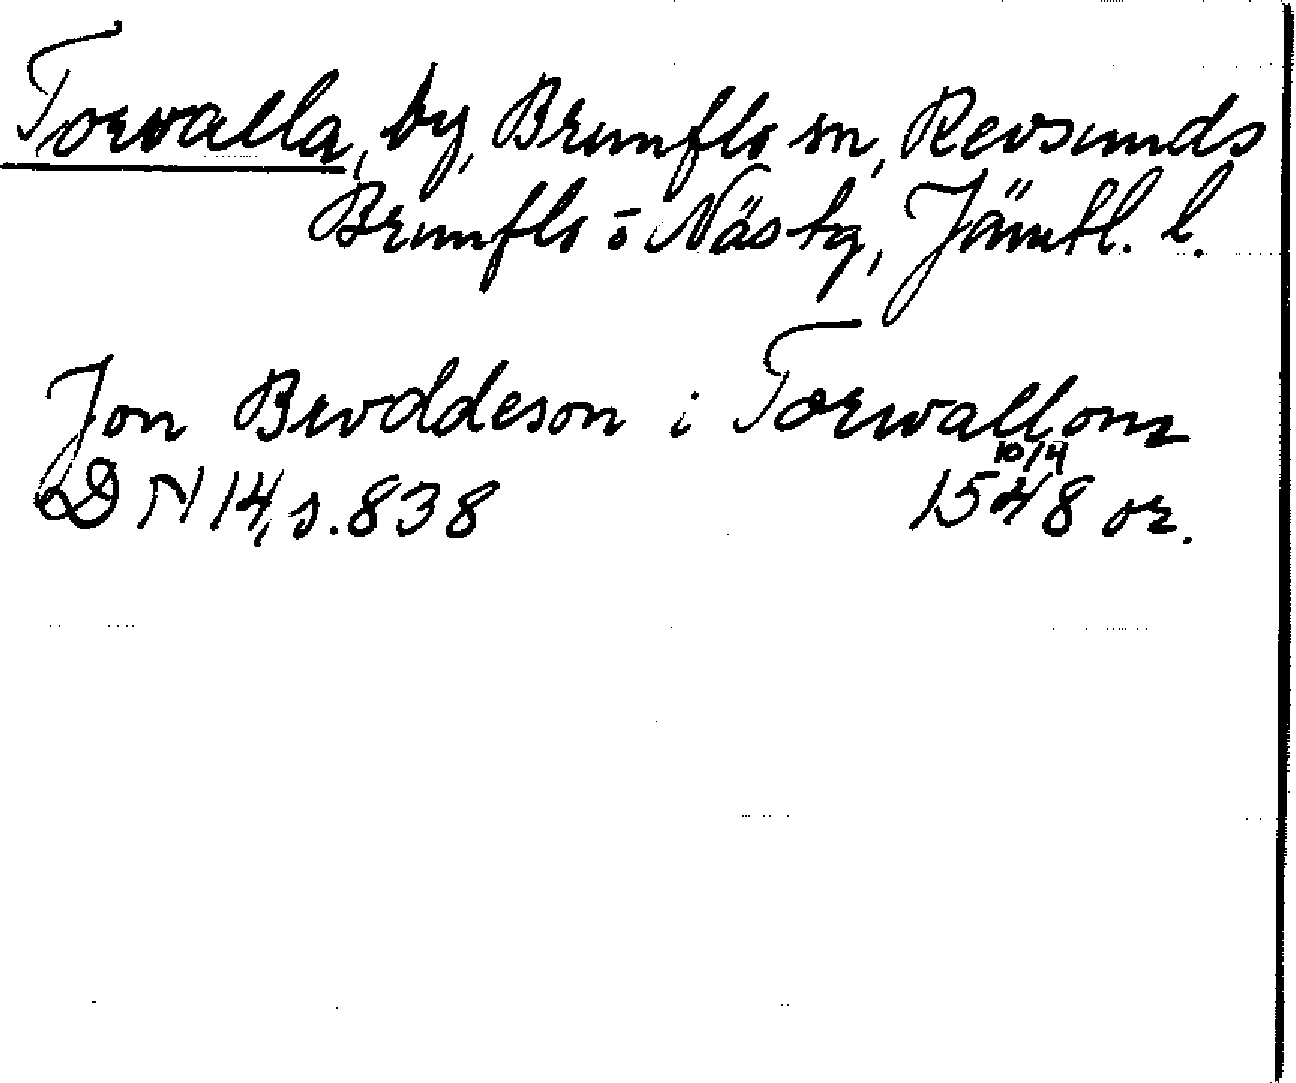 Torvalla, by, Brunflo sn, Revsunds
Brunflo o Näs tg, Jämtl. l.
Jon Brvddeson i Torwallom
DN 14, s. 838 10/4 1548 or.